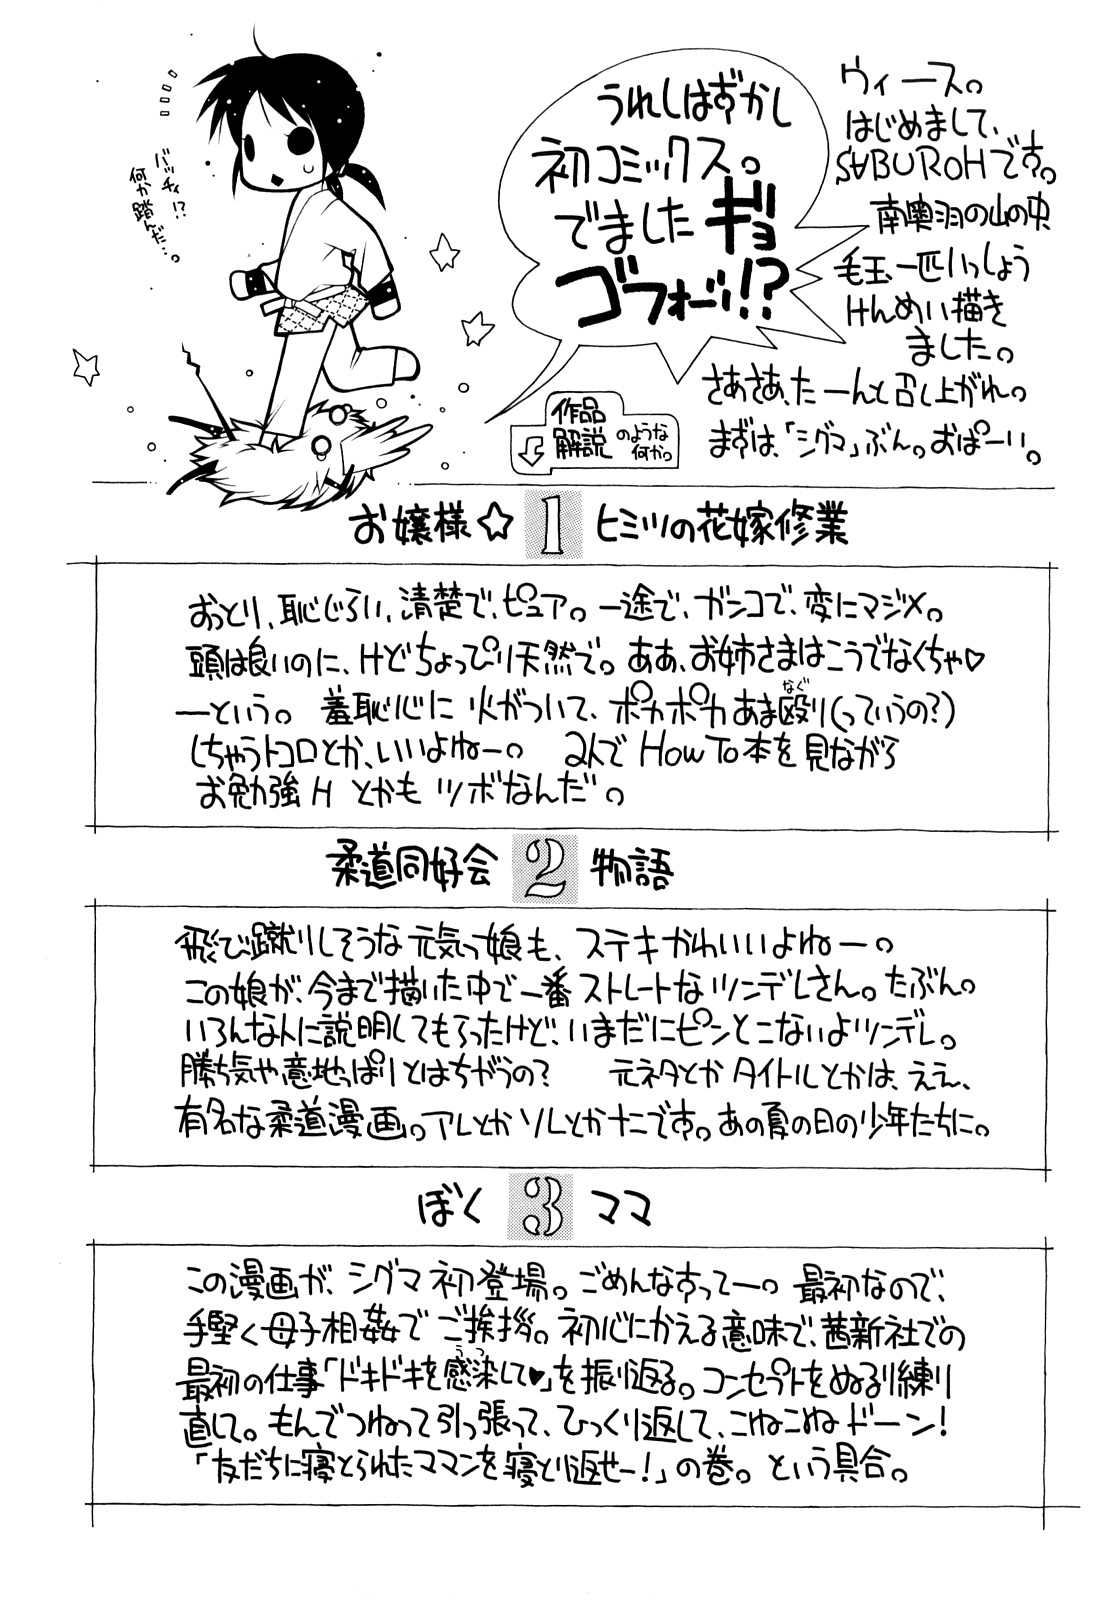 ウィース。
はじめまして、
SABUROHです。
南奥羽の山の中
毛玉一匹いっしょう
けんめい描き
ました。
さあさあ、たーんと召し上がれ。
まずは、「シグマ」ぶん。おぱーい。
うれしはずかし
初コミックス。
でましたギョ
ゴフォーッ!?
バッチィ!?
何か踏んだ…。
作品
解説
のような
何か。
お嬢様☆1ヒミツの花嫁修業
おっとり、恥じらい、清楚で、ピュア。一途で、ガンコで、変にマジメ。
頭は良いのに、けどちょっぴり天然で。ああ、お姉さまはこうでなくちゃ♡
―という。羞恥心に火がついて、ポカポカあま殴り(っていうの?)
なぐ
しちゃうトコロとか、いいよねー。2人でHow To本を見ながら
お勉強Hとかもツボなんだ。
柔道同好会2物語
飛び蹴りしそうな元気っ娘も、ステキかわいいよねー。
この娘が、今まで描いた中で一番ストレートなツンデレさん。たぶん。
いろんな人に説明してもらったけど、いまだにピンとこないよツンデレ。
勝ち気や意地っぱりとはちがうの?元ネタとかタイトルとかは、ええ、
有名な柔道漫画。アレとかソレとかナニです。あの夏の日の少年たちに。
ぼく3ママ
この漫画が、シグマ初登場。ごめんなすってー。最初なので、
手堅く母子相姦でご挨拶。初心にかえる意味で、茜新社での
最初の仕事「ドキドキを感染して♥」を振り返る。コンセプトをぬるり練り
うつ
直して。もんでつねって引っ張って、ひっくり返して、こねこねドーン!
「友だちに寝とられたママンを寝とり返せー!」の巻。という具合。